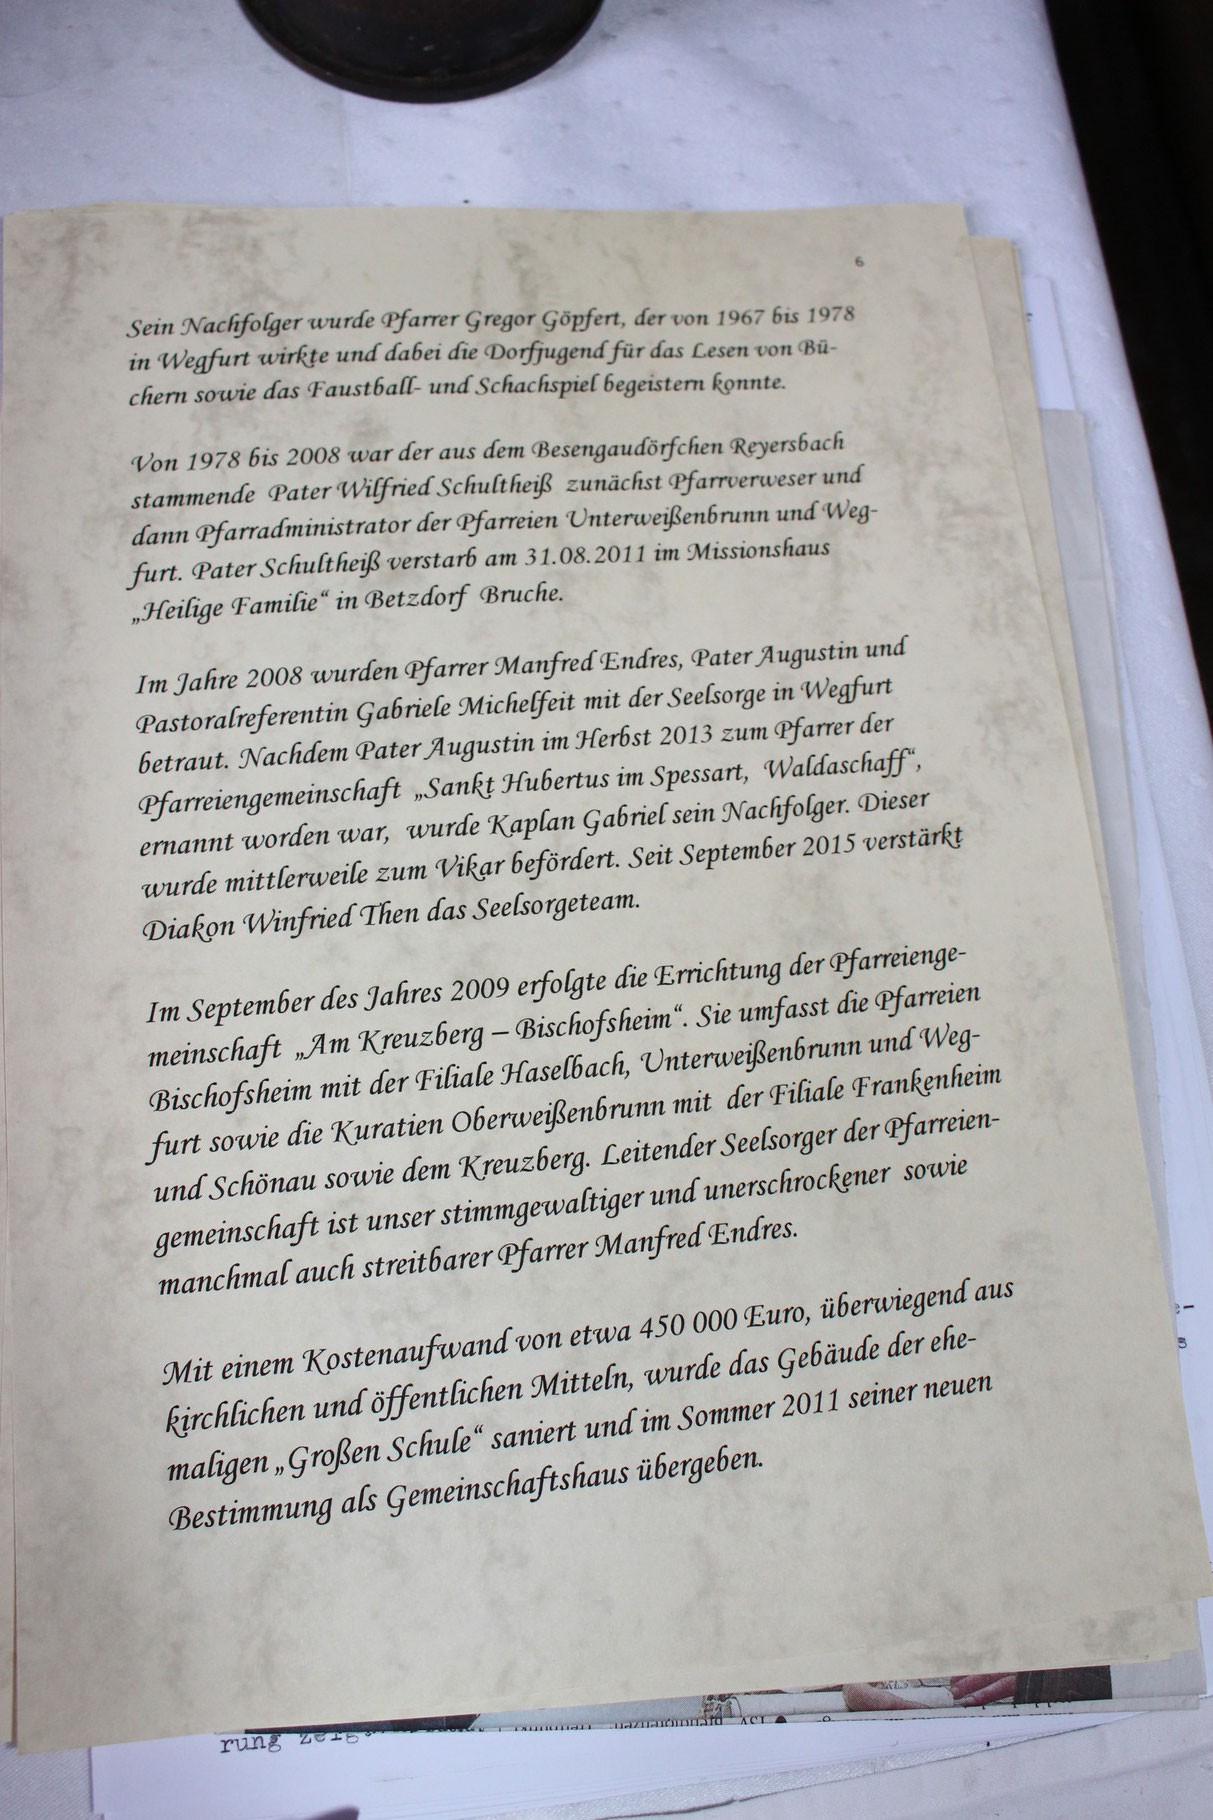 6
Sein Nachfolger wurde Pfarrer Gregor Göpfert, der von 1967 bis 1978
in Wegfurt wirkte und dabei die Dorfjugend für das Lesen von Bü-
chern sowie das Faustball- und Schachspiel begeistern konnte.
Von 1978 bis 2008 war der aus dem Besengaudörfchen Reyersbach
stammende Pater Wilfried Schultheiß zunächst Pfarrverweser und
dann Pfarradministrator der Pfarreien Unterweißenbrunn und Weg-
furt. Pater Schultheiß verstarb am 31.08.2011 im Missionshaus
„Heilige Familie“ in Betzdorf Bruche.
Im Jahre 2008 wurden Pfarrer Manfred Endres, Pater Augustin und
Pastoralreferentin Gabriele Michelfeit mit der Seelsorge in Wegfurt
betraut. Nachdem Pater Augustin im Herbst 2013 zum Pfarrer der
Pfarreiengemeinschaft „Sankt Hubertus im Spessart, Waldaschaff“,
ernannt worden war, wurde Kaplan Gabriel sein Nachfolger. Dieser
wurde mittlerweile zum Vikar befördert. Seit September 2015 verstärkt
Diakon Winfried Then das Seelsorgeteam.
Im September des Jahres 2009 erfolgte die Errichtung der Pfarreienge-
meinschaft „Am Kreuzberg – Bischofsheim“. Sie umfasst die Pfarreien
Bischofsheim mit der Filiale Haselbach, Unterweißenbrunn und Weg-
furt sowie die Kuratien Oberweißenbrunn mit der Filiale Frankenheim
und Schönau sowie dem Kreuzberg. Leitender Seelsorger der Pfarreien-
gemeinschaft ist unser stimmgewaltiger und unerschrockener sowie
manchmal auch streitbarer Pfarrer Manfred Endres.
Mit einem Kostenaufwand von etwa 450 000 Euro, überwiegend aus
kirchlichen und öffentlichen Mitteln, wurde das Gebäude der ehe-
maligen „Großen Schule“ saniert und im Sommer 2011 seiner neuen
Bestimmung als Gemeinschaftshaus übergeben.
rung